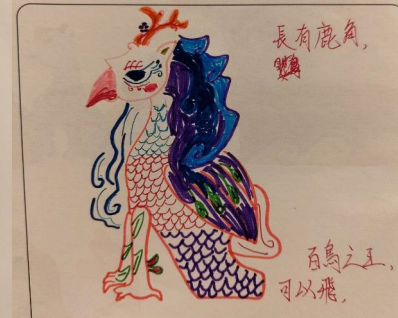 長有鹿角,
百鳥之王,
可以飛,